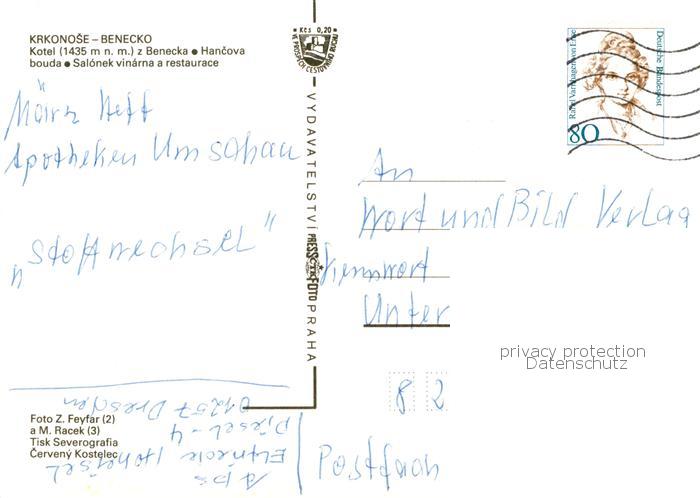 KRKONOŠE – BENECKO
Kotel (1435 m n. m.) z Benecka ● Hančova
bouda ● Salónek vinárna a restaurace
Kčs 0,20
VE PROSPĚCH CESTOVNÍHO RUCHU
März Heft
Apotheken Umschau
„Stoffwechsel"
VYDAVATELSTVÍ PRESSFOTO PRAHA
ČTK
Rahel Varnhagen von Ense
Deutsche Bundespost
80
An
Wort und Bild Verlag
Kennwort
Unter
82
Postfach
privacy protection
Datenschutz
Abs
Hoheisel
Diesel-4
01257 Dresden
Foto Z. Feyfar (2)
a M. Racek (3)
Tisk Severografia
Červený Kostelec